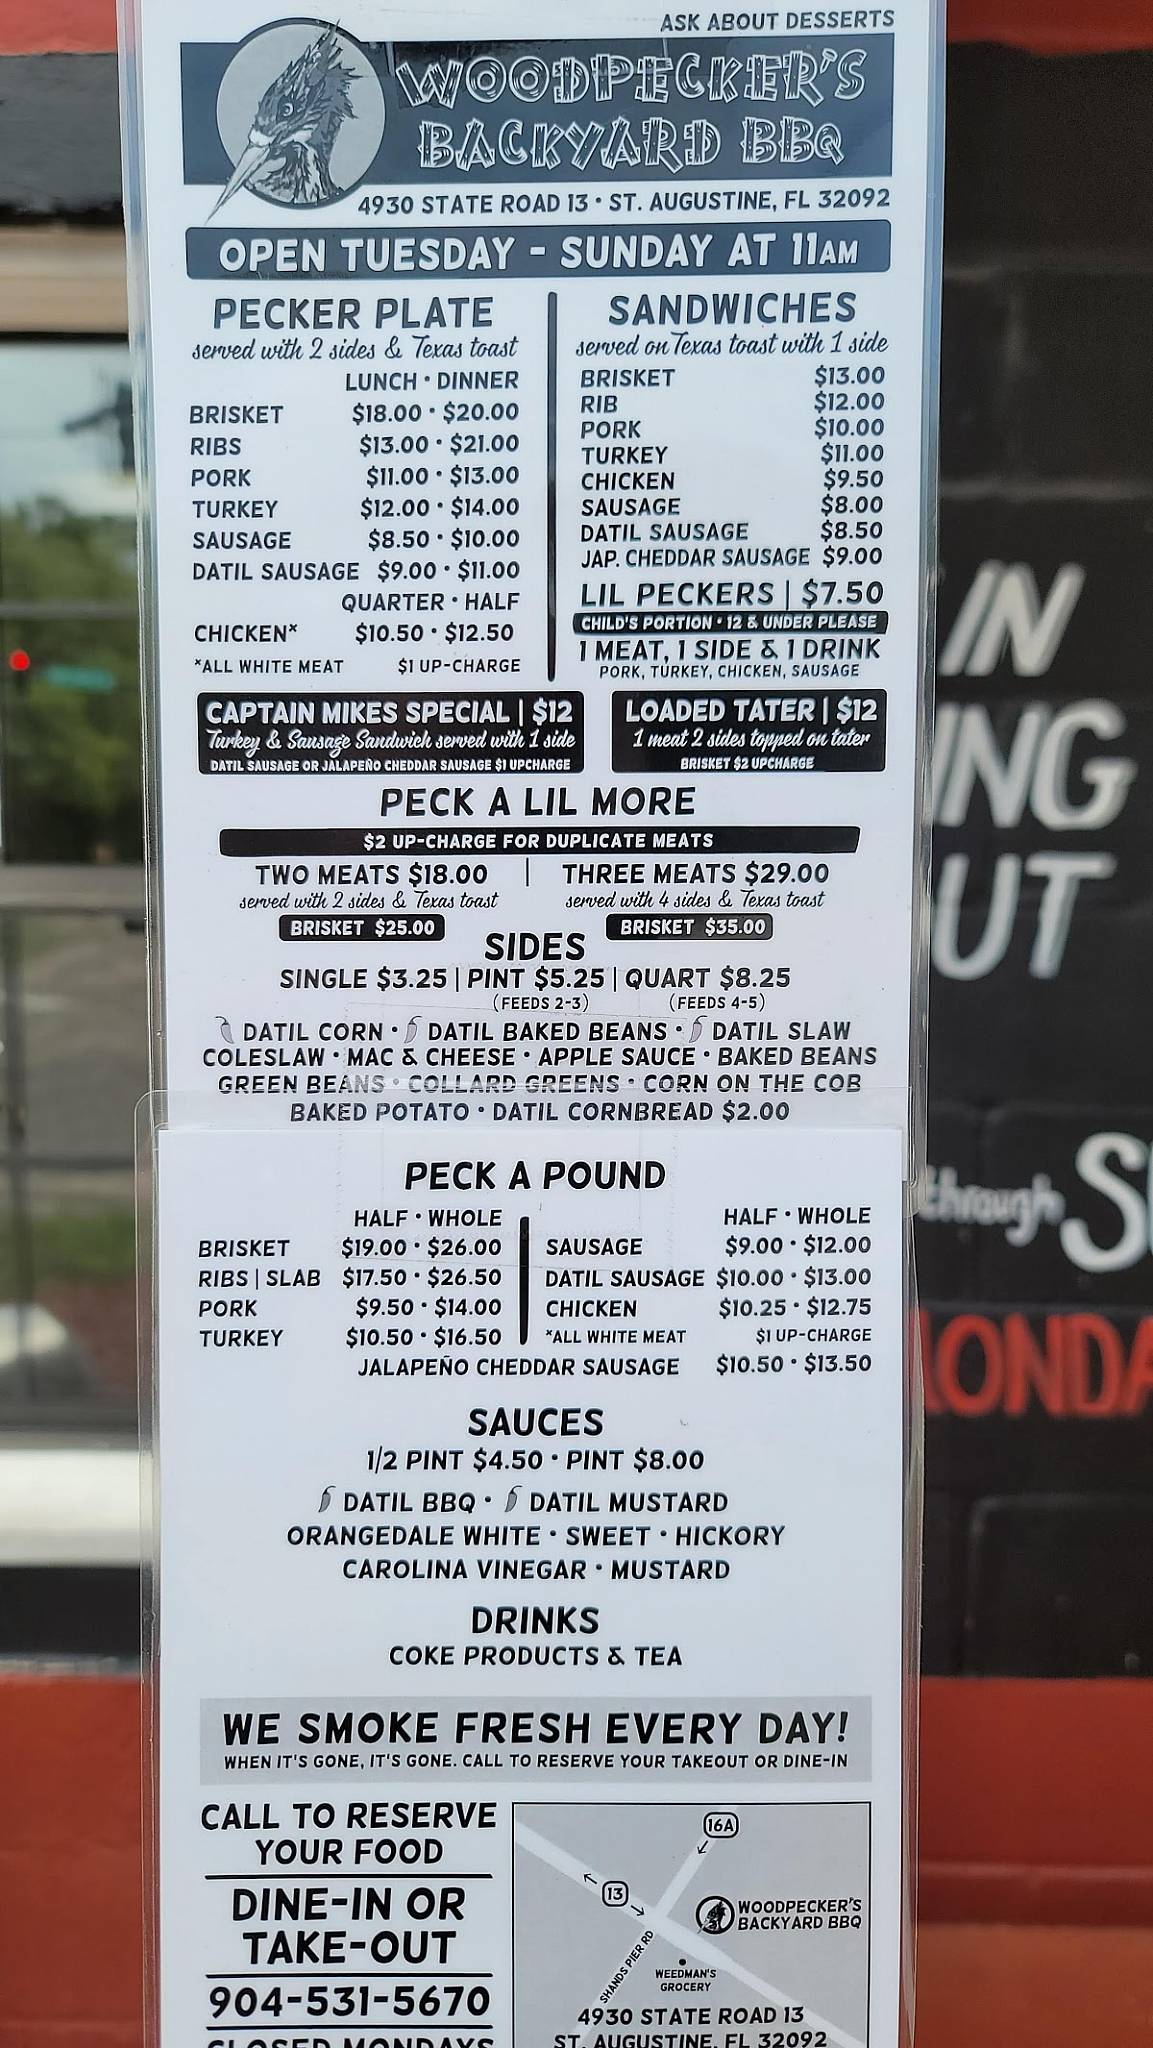 ASK ABOUT DESSERTS
WOODPECKER'S
BACKYARD BBQ
4930 STATE ROAD 13 • ST. AUGUSTINE, FL 32092
OPEN TUESDAY - SUNDAY AT 11AM
PECKER PLATE
served with 2 sides & Texas toast
LUNCH • DINNER
BRISKET $18.00 • $20.00
RIBS $13.00 • $21.00
PORK $11.00 • $13.00
TURKEY $12.00 • $14.00
SAUSAGE $8.50 • $10.00
DATIL SAUSAGE $9.00 • $11.00
QUARTER • HALF
CHICKEN* $10.50 • $12.50
*ALL WHITE MEAT $1 UP-CHARGE
SANDWICHES
served on Texas toast with 1 side
BRISKET $13.00
RIB $12.00
PORK $10.00
TURKEY $11.00
CHICKEN $9.50
SAUSAGE $8.00
DATIL SAUSAGE $8.50
JAP. CHEDDAR SAUSAGE $9.00
LIL PECKERS | $7.50
CHILD'S PORTION • 12 & UNDER PLEASE
1 MEAT, 1 SIDE & 1 DRINK
PORK, TURKEY, CHICKEN, SAUSAGE
CAPTAIN MIKES SPECIAL | $12
Turkey & Sausage Sandwich served with 1 side
DATIL SAUSAGE OR JALAPEÑO CHEDDAR SAUSAGE $1 UPCHARGE
LOADED TATER | $12
1 meat 2 sides topped on tater
BRISKET $2 UPCHARGE
PECK A LIL MORE
$2 UP-CHARGE FOR DUPLICATE MEATS
TWO MEATS $18.00 | THREE MEATS $29.00
served with 2 sides & Texas toast served with 4 sides & Texas toast
BRISKET $25.00 BRISKET $35.00
SIDES
SINGLE $3.25 | PINT $5.25 | QUART $8.25
(FEEDS 2-3) (FEEDS 4-5)
DATIL CORN • DATIL BAKED BEANS • DATIL SLAW
COLESLAW • MAC & CHEESE • APPLE SAUCE • BAKED BEANS
GREEN BEANS • COLLARD GREENS • CORN ON THE COB
BAKED POTATO • DATIL CORNBREAD $2.00
PECK A POUND
HALF • WHOLE
BRISKET $19.00 • $26.00
RIBS | SLAB $17.50 • $26.50
PORK $9.50 • $14.00
TURKEY $10.50 • $16.50
HALF • WHOLE
SAUSAGE $9.00 • $12.00
DATIL SAUSAGE $10.00 • $13.00
CHICKEN $10.25 • $12.75
*ALL WHITE MEAT $1 UP-CHARGE
JALAPEÑO CHEDDAR SAUSAGE $10.50 • $13.50
SAUCES
1/2 PINT $4.50 • PINT $8.00
DATIL BBQ • DATIL MUSTARD
ORANGEDALE WHITE • SWEET • HICKORY
CAROLINA VINEGAR • MUSTARD
DRINKS
COKE PRODUCTS & TEA
WE SMOKE FRESH EVERY DAY!
WHEN IT'S GONE, IT'S GONE. CALL TO RESERVE YOUR TAKEOUT OR DINE-IN
CALL TO RESERVE
YOUR FOOD
DINE-IN OR
TAKE-OUT
904-531-5670
CLOSED MONDAYS
16A
13
WOODPECKER'S
BACKYARD BBQ
SHANDS PIER RD
WEEDMAN'S
GROCERY
4930 STATE ROAD 13
ST. AUGUSTINE, FL 32092
IN
NG
UT
through S
ONDA